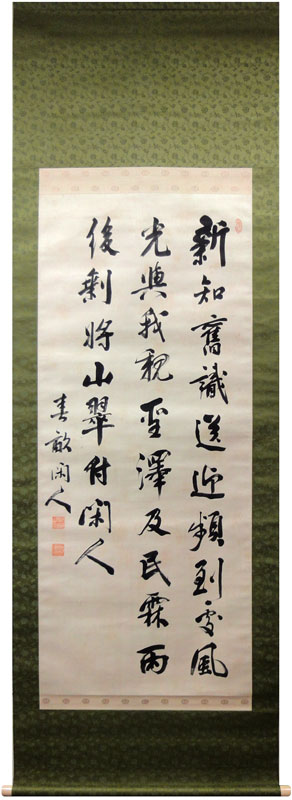 新知舊識送迎頻到處風
光與我親聖澤及民霖雨
後剩將山翠付閑人
春畝閑人